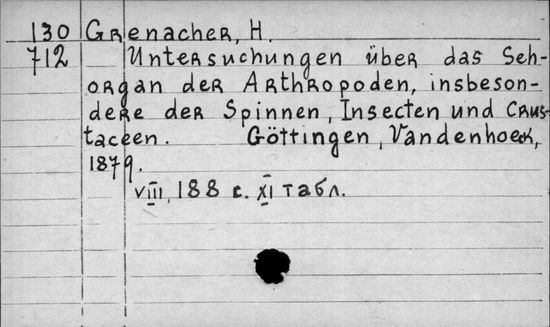 130 Grenacher, H.
712 Untersuchungen über das Seh-
organ der Arthropoden, insbeson-
dere der Spinnen, Insecten und Crus-
taceen. Göttingen, Vandenhoeck,
1879.
VIII, 188 с. XI табл.